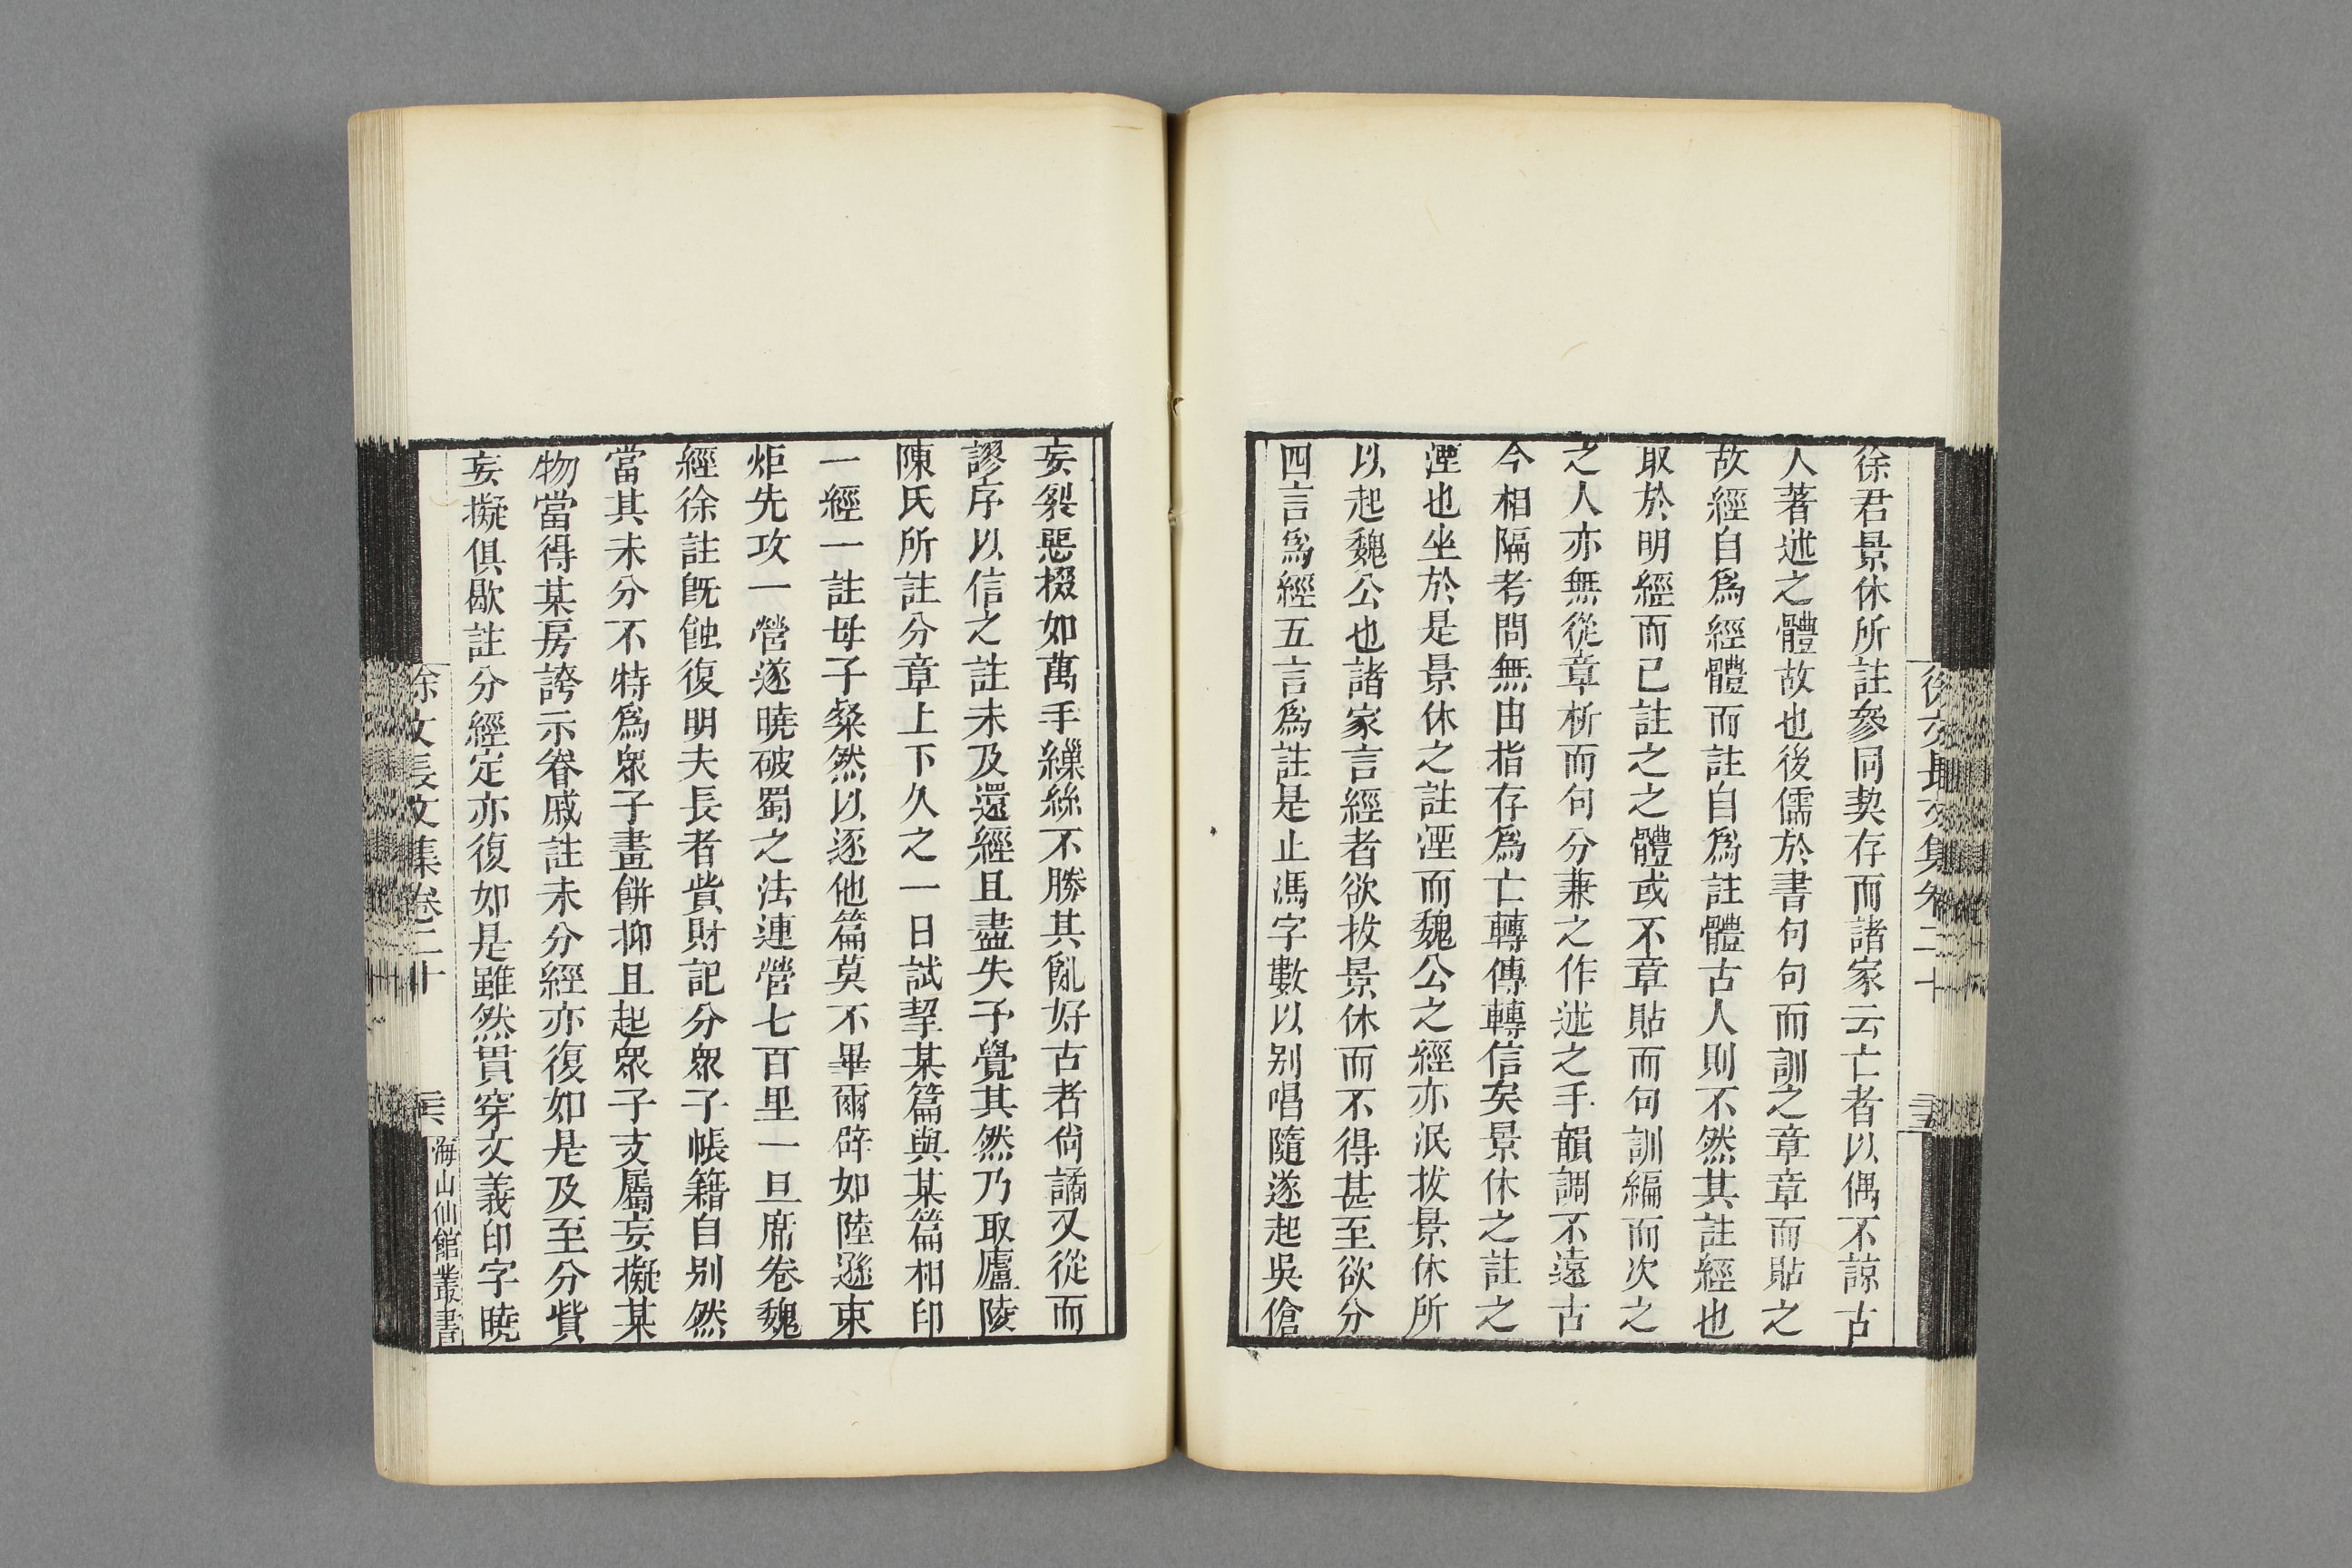 徐文長文集卷二十
徐君景休所註參同契存而諸家云亡者以偶不諒古
人著述之體故也後儒於書句句而訓之章章而貼之
故經自爲經體而註自爲註體古人則不然其註經也
取於明經而已註之之體或不章貼而句訓編而次之
之人亦無從章析而句分兼之作述之手韻調不遠古
今相隔考問無由指存爲亡轉傳轉信矣景休之註之
湮也坐於是景休之註湮而魏公之經亦泯拔景休所
以起魏公也諸家言經者欲拔景休而不得甚至欲分
四言爲經五言爲註是止馮字數以别唱隨遂起吳傖
妄裂惡掇如萬手繅絲不勝其亂好古者尙譎又從而
謬序以信之註未及還經且盡失予覺其然乃取廬陵
陳氏所註分章上下久之一日試挈某篇與某篇相印
一經一註母子粲然以逐他篇莫不畢爾辟如陸遜束
炬先攻一營遂曉破蜀之法連營七百里一旦席卷魏
經徐註旣蝕復明夫長者貲財記分衆子帳籍自别然
當其未分不特爲衆子畫餅抑且起衆子支屬妄擬某
物當得某房誇示眷戚註未分經亦復如是及至分貲
妄擬俱歇註分經定亦復如是雖然貫穿文義印字曉
徐文長文集卷二十
海山仙館叢書